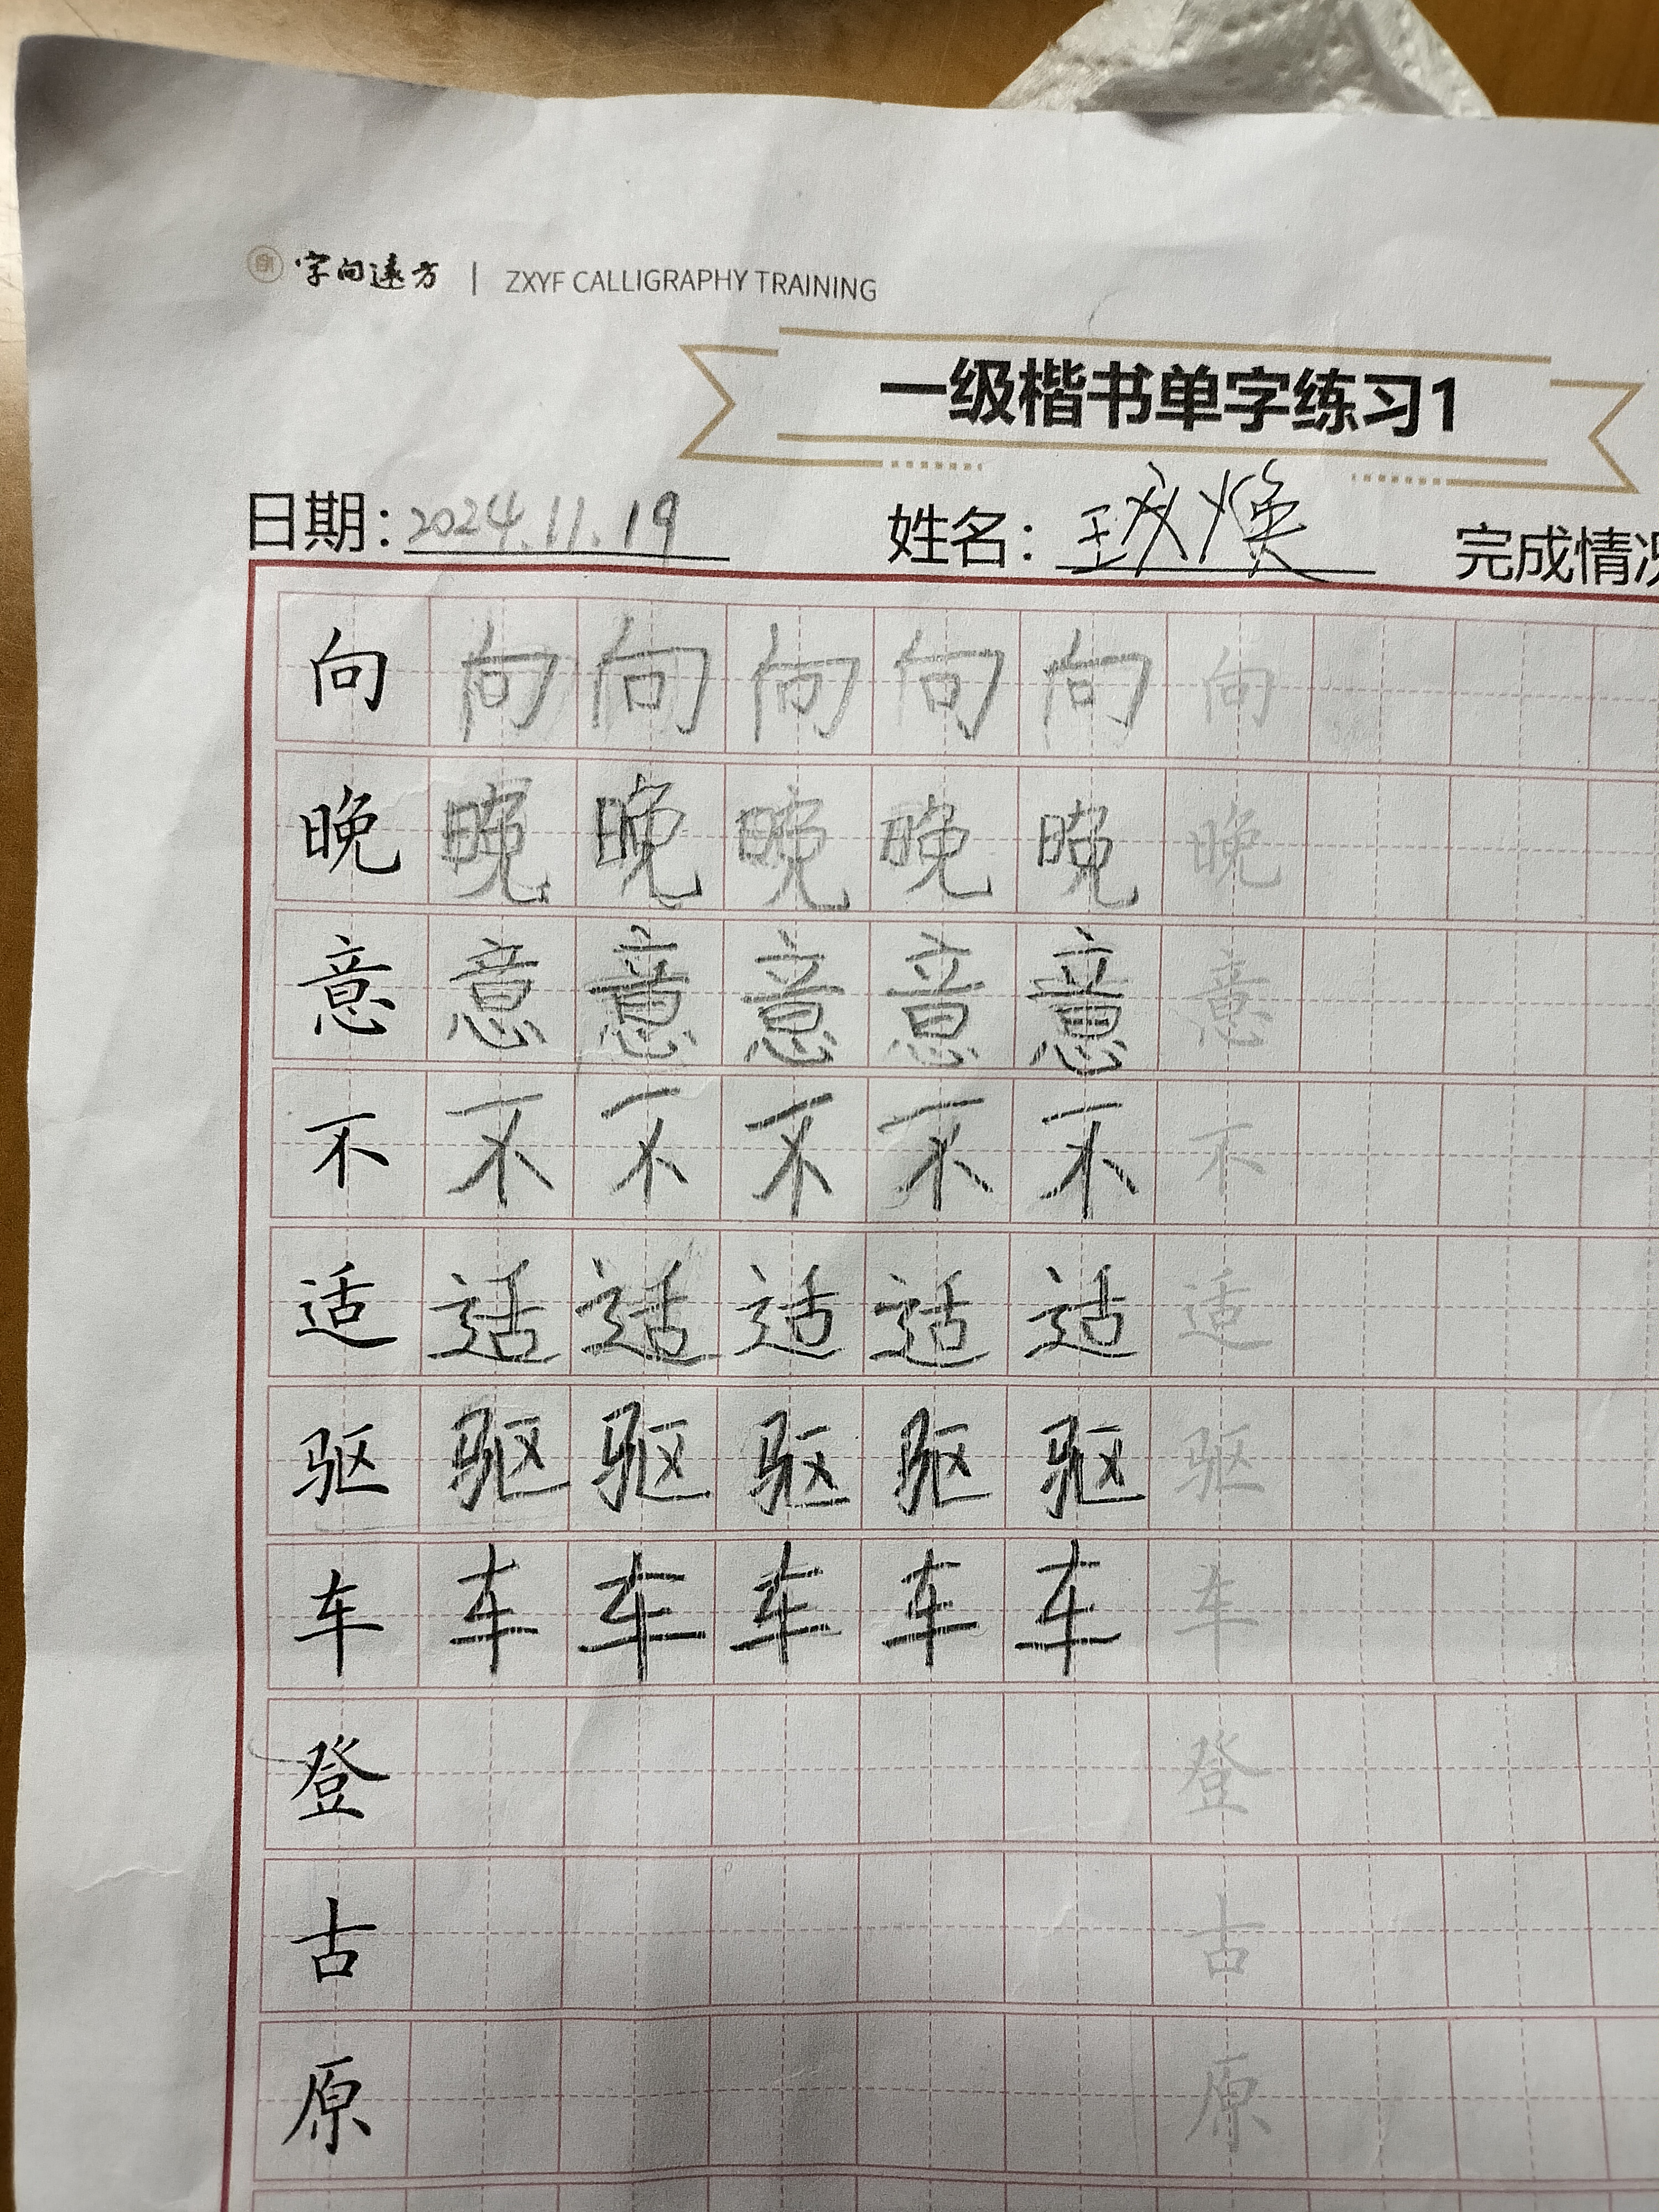 字向遠方 | ZXYF CALLIGRAPHY TRAINING
一级楷书单字练习1
日期：2024.11.19 姓名： 完成情况
向 向 向 向 向 向 向
晚 晚 晚 晚 晚 晚 晚
意 意 意 意 意 意 意
不 不 不 不 不 不 不
适 适 适 适 适 适 适
驱 驱 驱 驱 驱 驱 驱
车 车 车 车 车 车 车
登 登
古 古
原 原